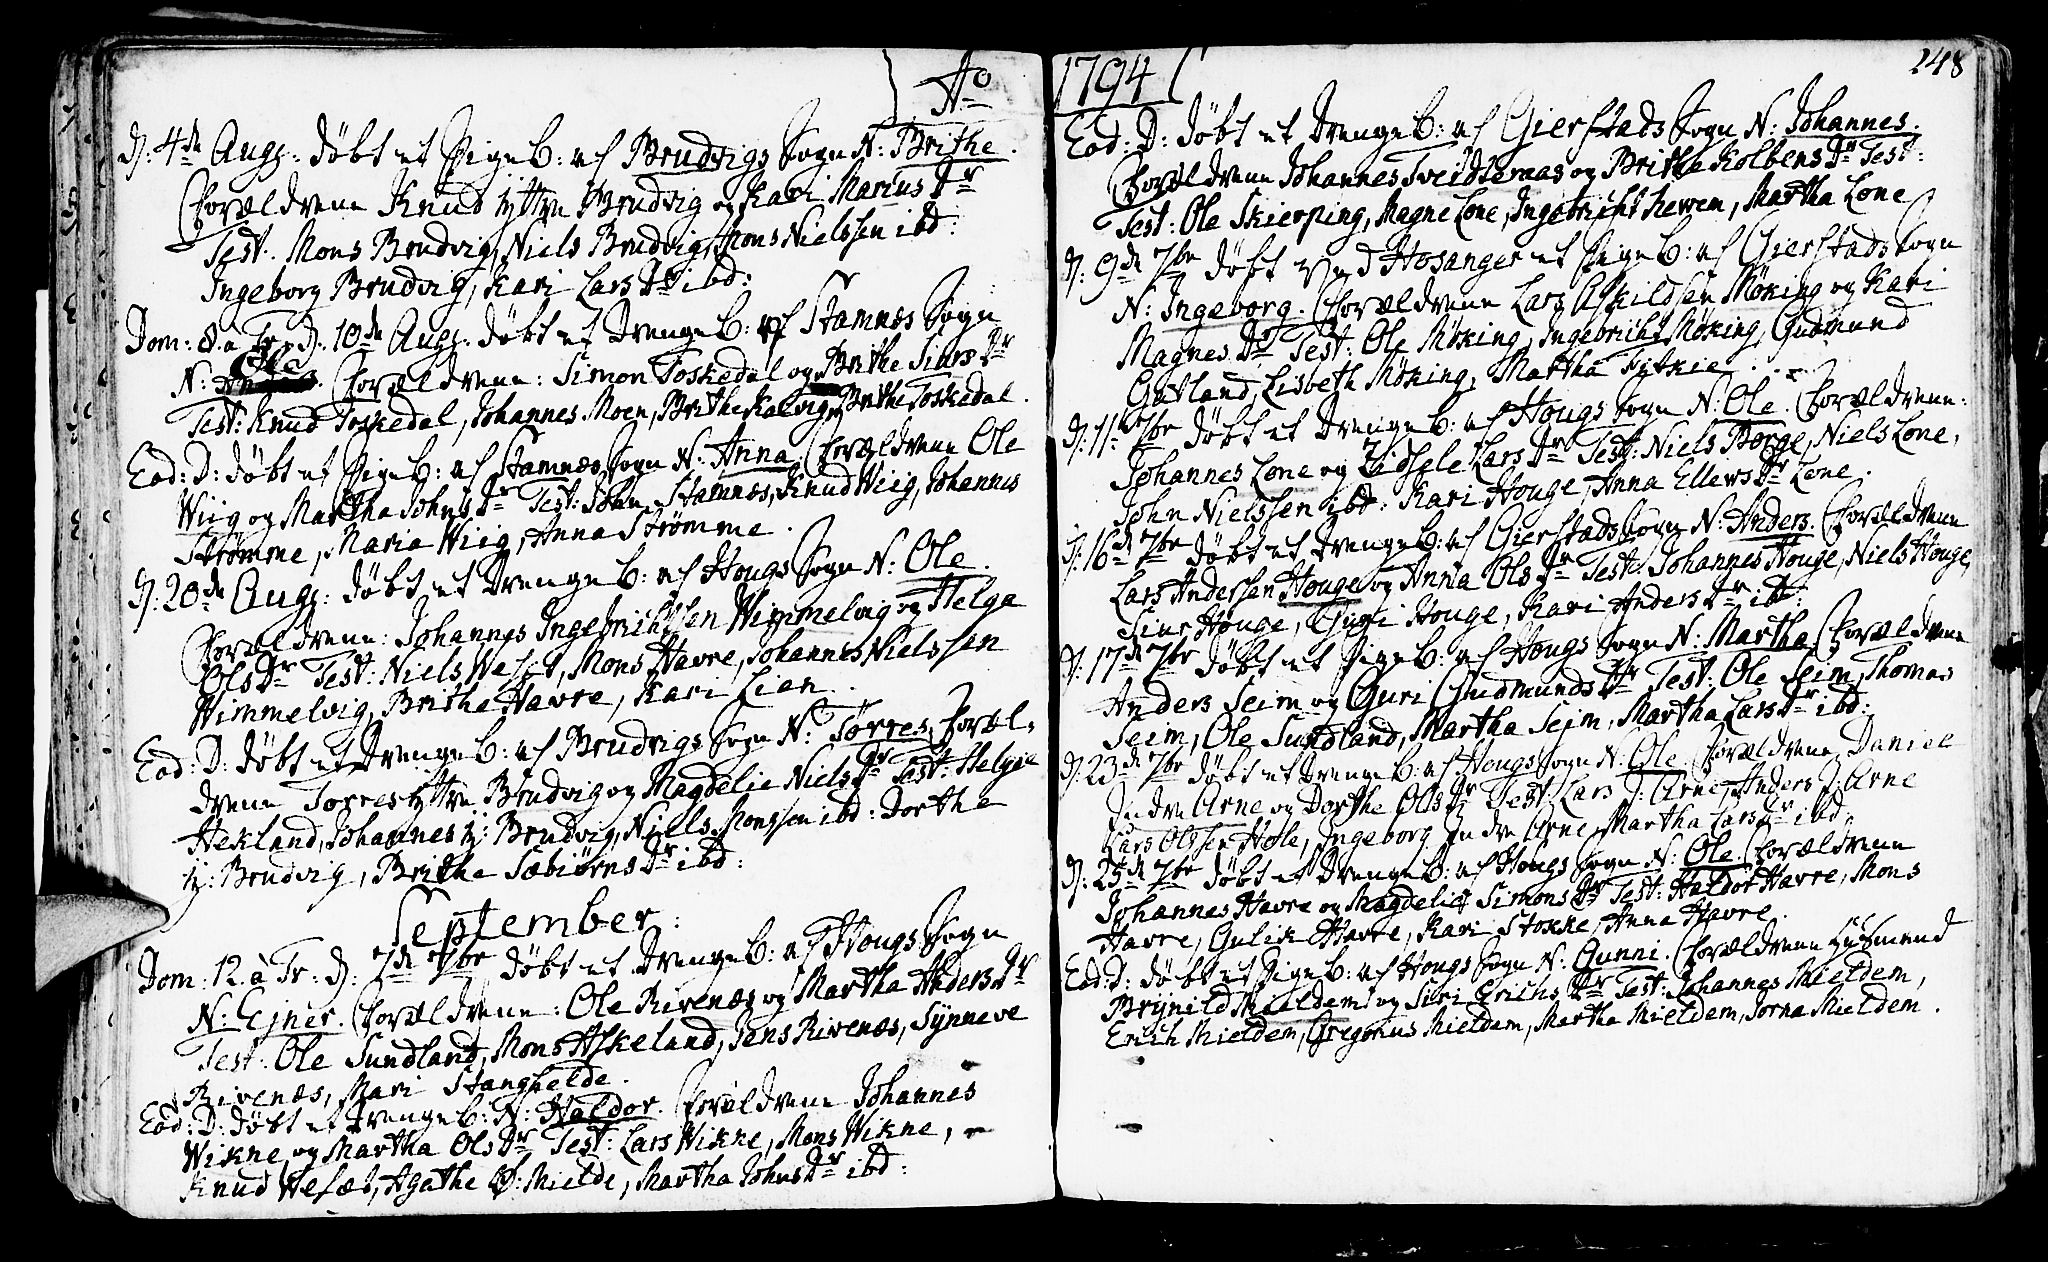 Ao
D: 4de Aug: døbt et PigeB: af Brudvigs Sogn N: Brithe.
Forældrene Knud yttre Brudvig og Kari Marius Dr
Test: Mons Brudvig, Niels Brudvig, Mons Nielssen ibd:
Ingeborg Brudvig, Kari Lars Dr ibd:
Dom: 8. à Tr: d: 10de Aug: døbt et DrengeB: af Stamnæs Sogn
N: Ole. Forældrene: Simon Toskedal og Brithe Siurs Dr
Test: Knud Toskedal, Johannes Moen, Brithe Kalvig, Brithe Toskedal.
Eod: D: døbt et PigeB: af Stamnæs Sogn N: Anna. Forældrene Ole
Wiig og Martha Johns Dr Test: John Stamnæs, Knud Wiig, Johannes
Strømme, Maria Wiig, Anna Strømme.
D: 20de Aug: døbt et DrengeB: af Hougs Sogn N: Ole.
Forældrene: Johannes Ingebrichtsen Wimmelvig og Helga
Ols Dr Test: Niels Wesæt, Mons Havre, Johannes Nielssen
Wimmelvig, Britha Havre, Kari Lien.
Eod: D: døbt et DrengeB: af Brudvigs Sogn N: Torres, Foræl-
drene Torres yttre Brudvig og Magdelie Niels Dr Test: Helgie
Hekland, Johannes y: Brudvig, Niels Monssen ibd: Dorthe
y: Brudvig, Brithe Sæbiørns Dr ibd:
September:
Dom: 12. à Tr: d: 7de 7br døbt et DrengeB: af Hougs Sogn
N: Ejner. Forældrene: Ole Rivenæs og Martha Anders Dr
Test: Ole Sundland, Mons Askeland, Jens Rivenæs, Synneve
Rivenæs, Mari Stanghelde.
Eod: D: døbt et DrengeB: N: Haldor. Forældrene Johannes
Wikne og Martha Ols Dr Test: Lars Wikne, Mons Wikne,
Knud Wesæt, Agathe Ø: Mielde, Martha Johns Dr ibd:
1794
248
Eod: D: døbt et DrengeB: af Gierstads Sogn N: Johannes.
Forældrene Johannes Tveidternas og Britha Kolbens Dr Test:
Test: Ole Skierping, Magne Lone, Ingebricht Rewem, Martha Lone
D: 9de 7br døbt ved Hosanger et PigeB: af Gierstads Sogn
N: Ingeborg. Forældrene Lars Askildsen Møking og Kari
Magnes Dr Test: Ole Møking, Ingebricht Møking, Gudmund
Gatland, Lisbeth Møking, Martha Fyksie.
D: 11te 7br døbt et DrengeB: af Hougs Sogn N: Ole. Forældrene:
Johannes Lone og Zidsele Lars Dr Test: Niels Borge, Niels Lone,
John Nielssen ibd: Kari Houge, Anna Ellews Dr Lone.
D: 16de 7br døbt et DrengeB: af Gierstads Sogn N: Anders. Forældrene
Lars Anderssen Houge og Anna Ols Dr Test: Johannes Houge, Niels Houge,
Siur Houge, Guri Houge, Kari Anders Dr ibd:
D: 17de 7br døbt et PigeB: af Hougs Sogn N: Martha. Forældrene
Anders Seim og Guri Gudmunds Dr Test: Ole Seim, Thomas
Seim, Ole Sundland, Martha Seim, Martha Lars Dr ibd:
D: 23de 7br døbt et DrengeB: af Hougs Sogn N: Ole. Forældrene Daniel
Indre Arne og Dorthe Ols Dr Test: Lars J: Arne, Anders J: Arne
Lars Olssen Hole, Ingeborg Indre Arne, Martha Lars Dr ibd:
D: 25de 7br døbt et DrengeB: af Hougs Sogn N: Ole. Forældrene
Johannes Havre og Magdelie Simons Dr Test: Haldor Havre, Mons
Havre, Gulik Havre, Kari Stokke, Anna Havre.
Eod: D: døbt et PigeB: af Hougs Sogn N: Gunni. Forældrene Huusmend
Brynild Mieldem og Siri Erichs Dr Test: Johannes Mieldem,
Erich Mieldem, Gregorius Mieldem, Martha Mieldem, Jorna Mieldem.